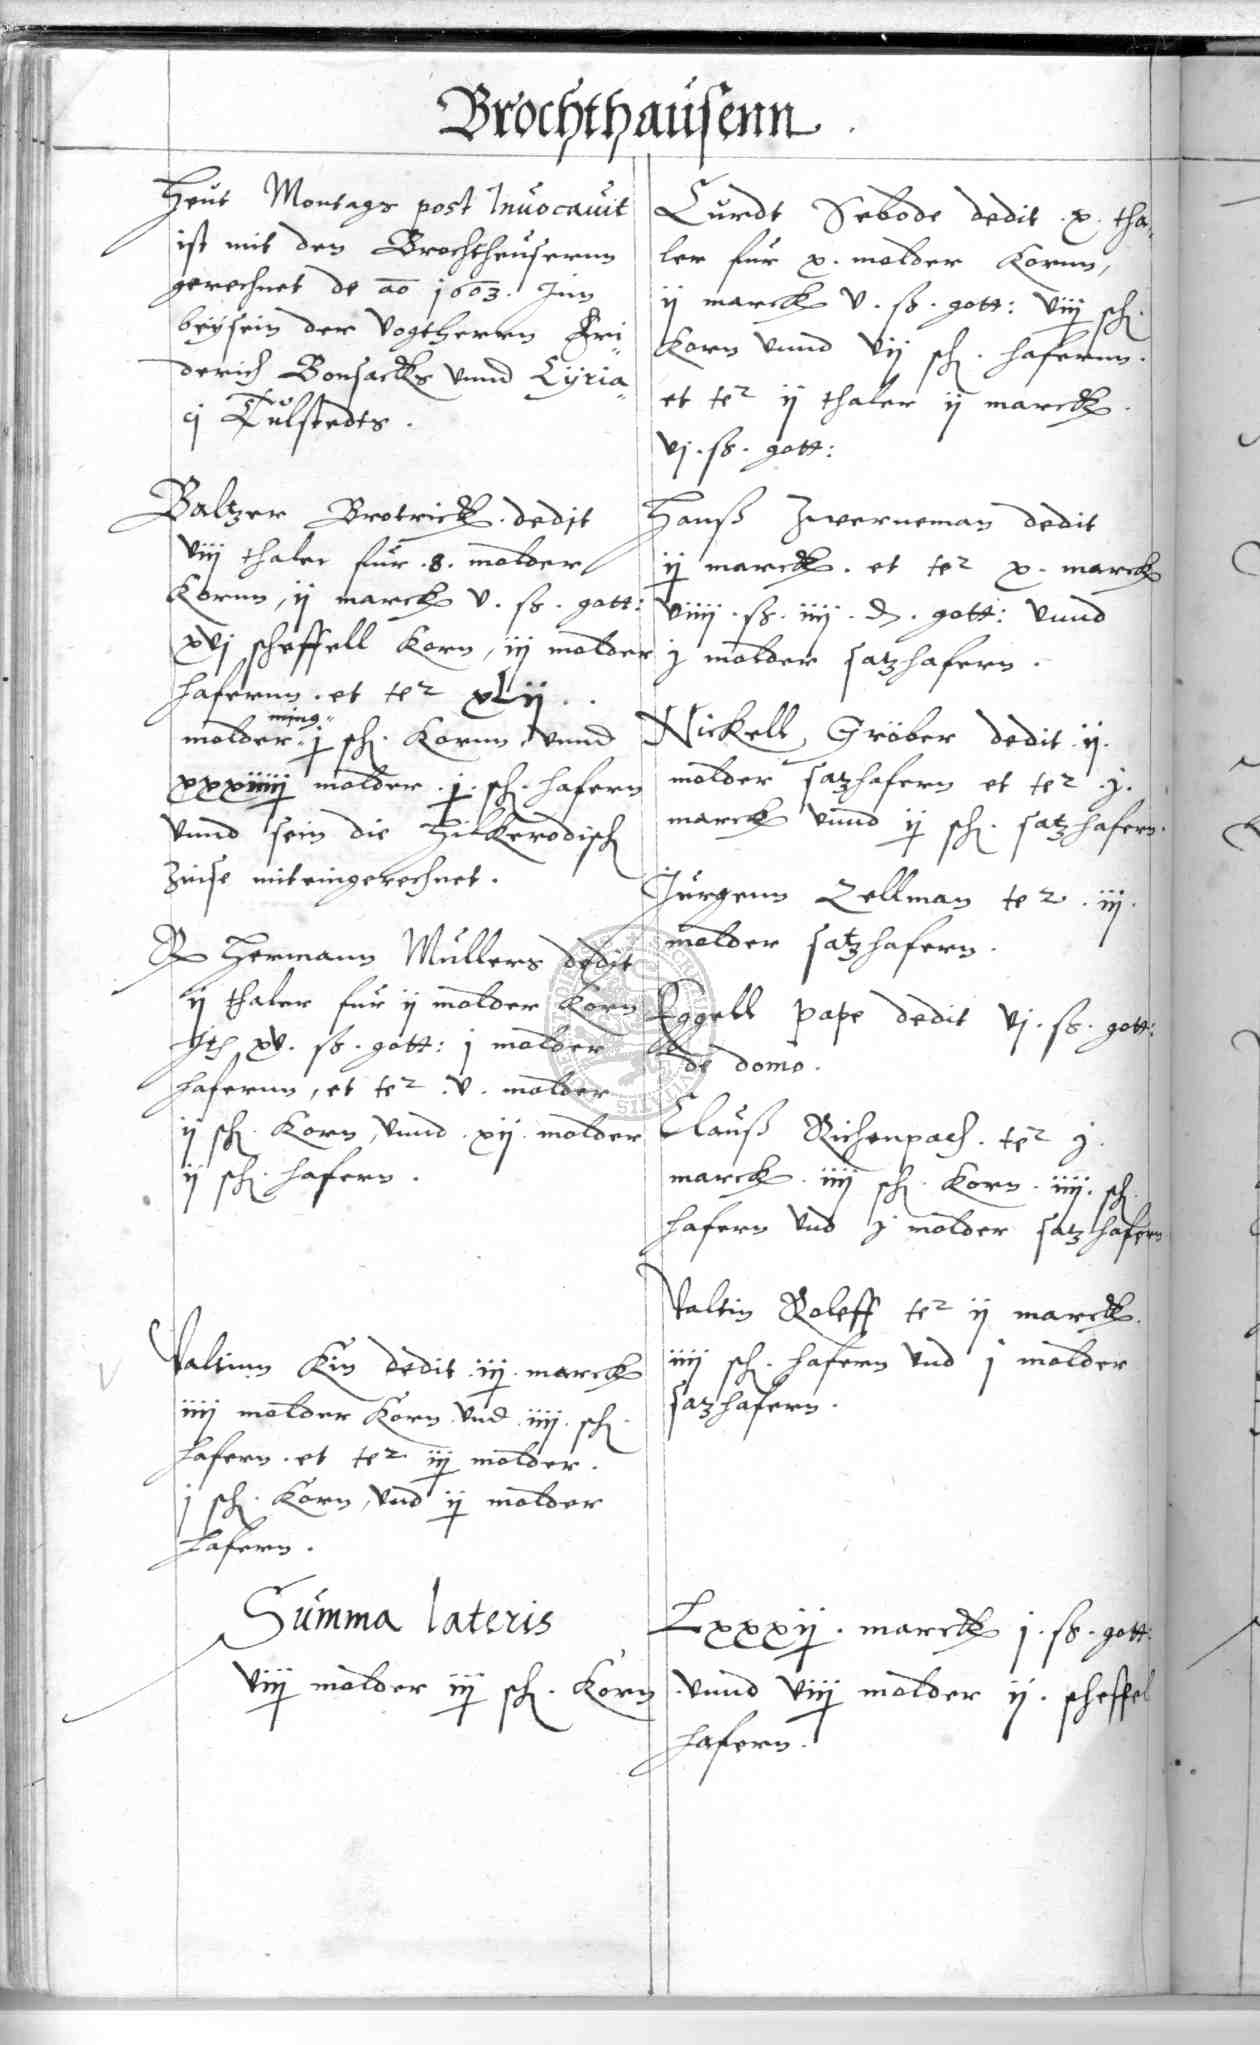 Brochthausenn.
Heut Montags post Inuocauit
ist mit den Brochtheusernn
gerechnet de ao 1603. Inn
beysein der Vogtherrn Fri¬
derich Bonsacks vnnd Cyria¬
cj Tulstedts.
Baltzer Brotrick. dedit
viij thaler für .8. molder
Kornn, ij marck v. ß. gott:
xvj scheffell Korn, iij molder
hafernn. et ter xLij..
ming¬
molder. j sch. Kornn, vnnd
xxxiiiij molder .j. sch. hafern
vnnd sein die Hilkerodisch
Zinse miteingerechnet.
R Hermann Mullers dedit
ij thaler für ij molder Korn
It xv. ß. gott: j molder
hafernn, et ter .v. molder
ij sch. Korn, vnnd .xij. molder
ij sch. hafern.
Valtinn Kin dedit .iij. marck
iiij molder Korn vnd .iiij. sch.
hafern. et ter iij molder.
j sch. Korn, vnd ij molder
hafern.
Summa lateris
viij molder iij sch. Korn
Curdt Sebode dedit .x. tha¬
ler für x. molder Kornn,
ij marck v. ß. gott: viij sch.
Korn vnnd vij sch. hafernn.
et ter ij thaler ij marck.
vj. ß. gott:
Hanß Zwerneman dedit
ij marck. et ter x. marck
viiij. ß. iiij. d. gott: vnnd
j molder satzhafern.
Nickell Gröber dedit .ij.
molder satzhafern et ter .j.
marck vnnd ij sch. satzhafern.
Jurgenn Zellman ter .iij.
molder satzhafern.
Eggell Pape dedit vj. ß. gott:
de domo.
Clauß Richenpach. ter j.
marck. iiij sch. Korn. iiij. sch.
hafern vnd j molder satzhafern
Valtin Roleff ter ij marck.
iiij sch. hafern vnd j molder
satzhafern.
Lxxxij. marck j. ß. gott:
.vnnd viij molder ij. scheffel
hafern.